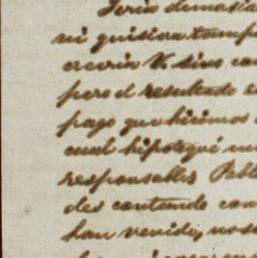 Sería demasia
ni quisiera tamp
creería V. sino con
pero el resultado e
pago que hicimos
cual hipotequé mi
responsables Pabl
des contando con
han venido, nos